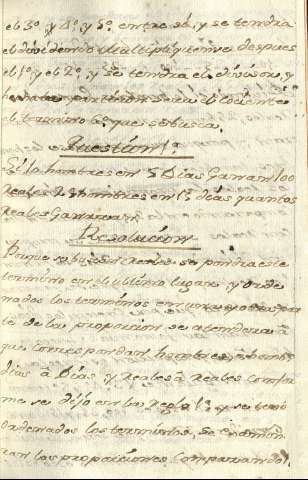 el 3º y 4º y 5º entre sí, y se tendra
el dividendo Multipliquense despues
el 1º y el 2º, y se tendra el divisor, y
hecha la particion sera el Cociente
el termino 6º que se busca.
Question 1ª
Si 10 hombres en 5 Dias Ganan 100
Reales hombres en dias quantos
Reales Ganaran
Resolucion
Porque se buscan Reales se pondra este
termino en el ultimo lugar y orde
nados los terminos en una y otra par
te de la proporcion se atendera à
que correspondan hombres à hombres
dias à Dias y Reales à Reales confor
me se dijo en la Regla 1ª y se tend
ordenados los terminos, se exami
ran las proporciones Comparando